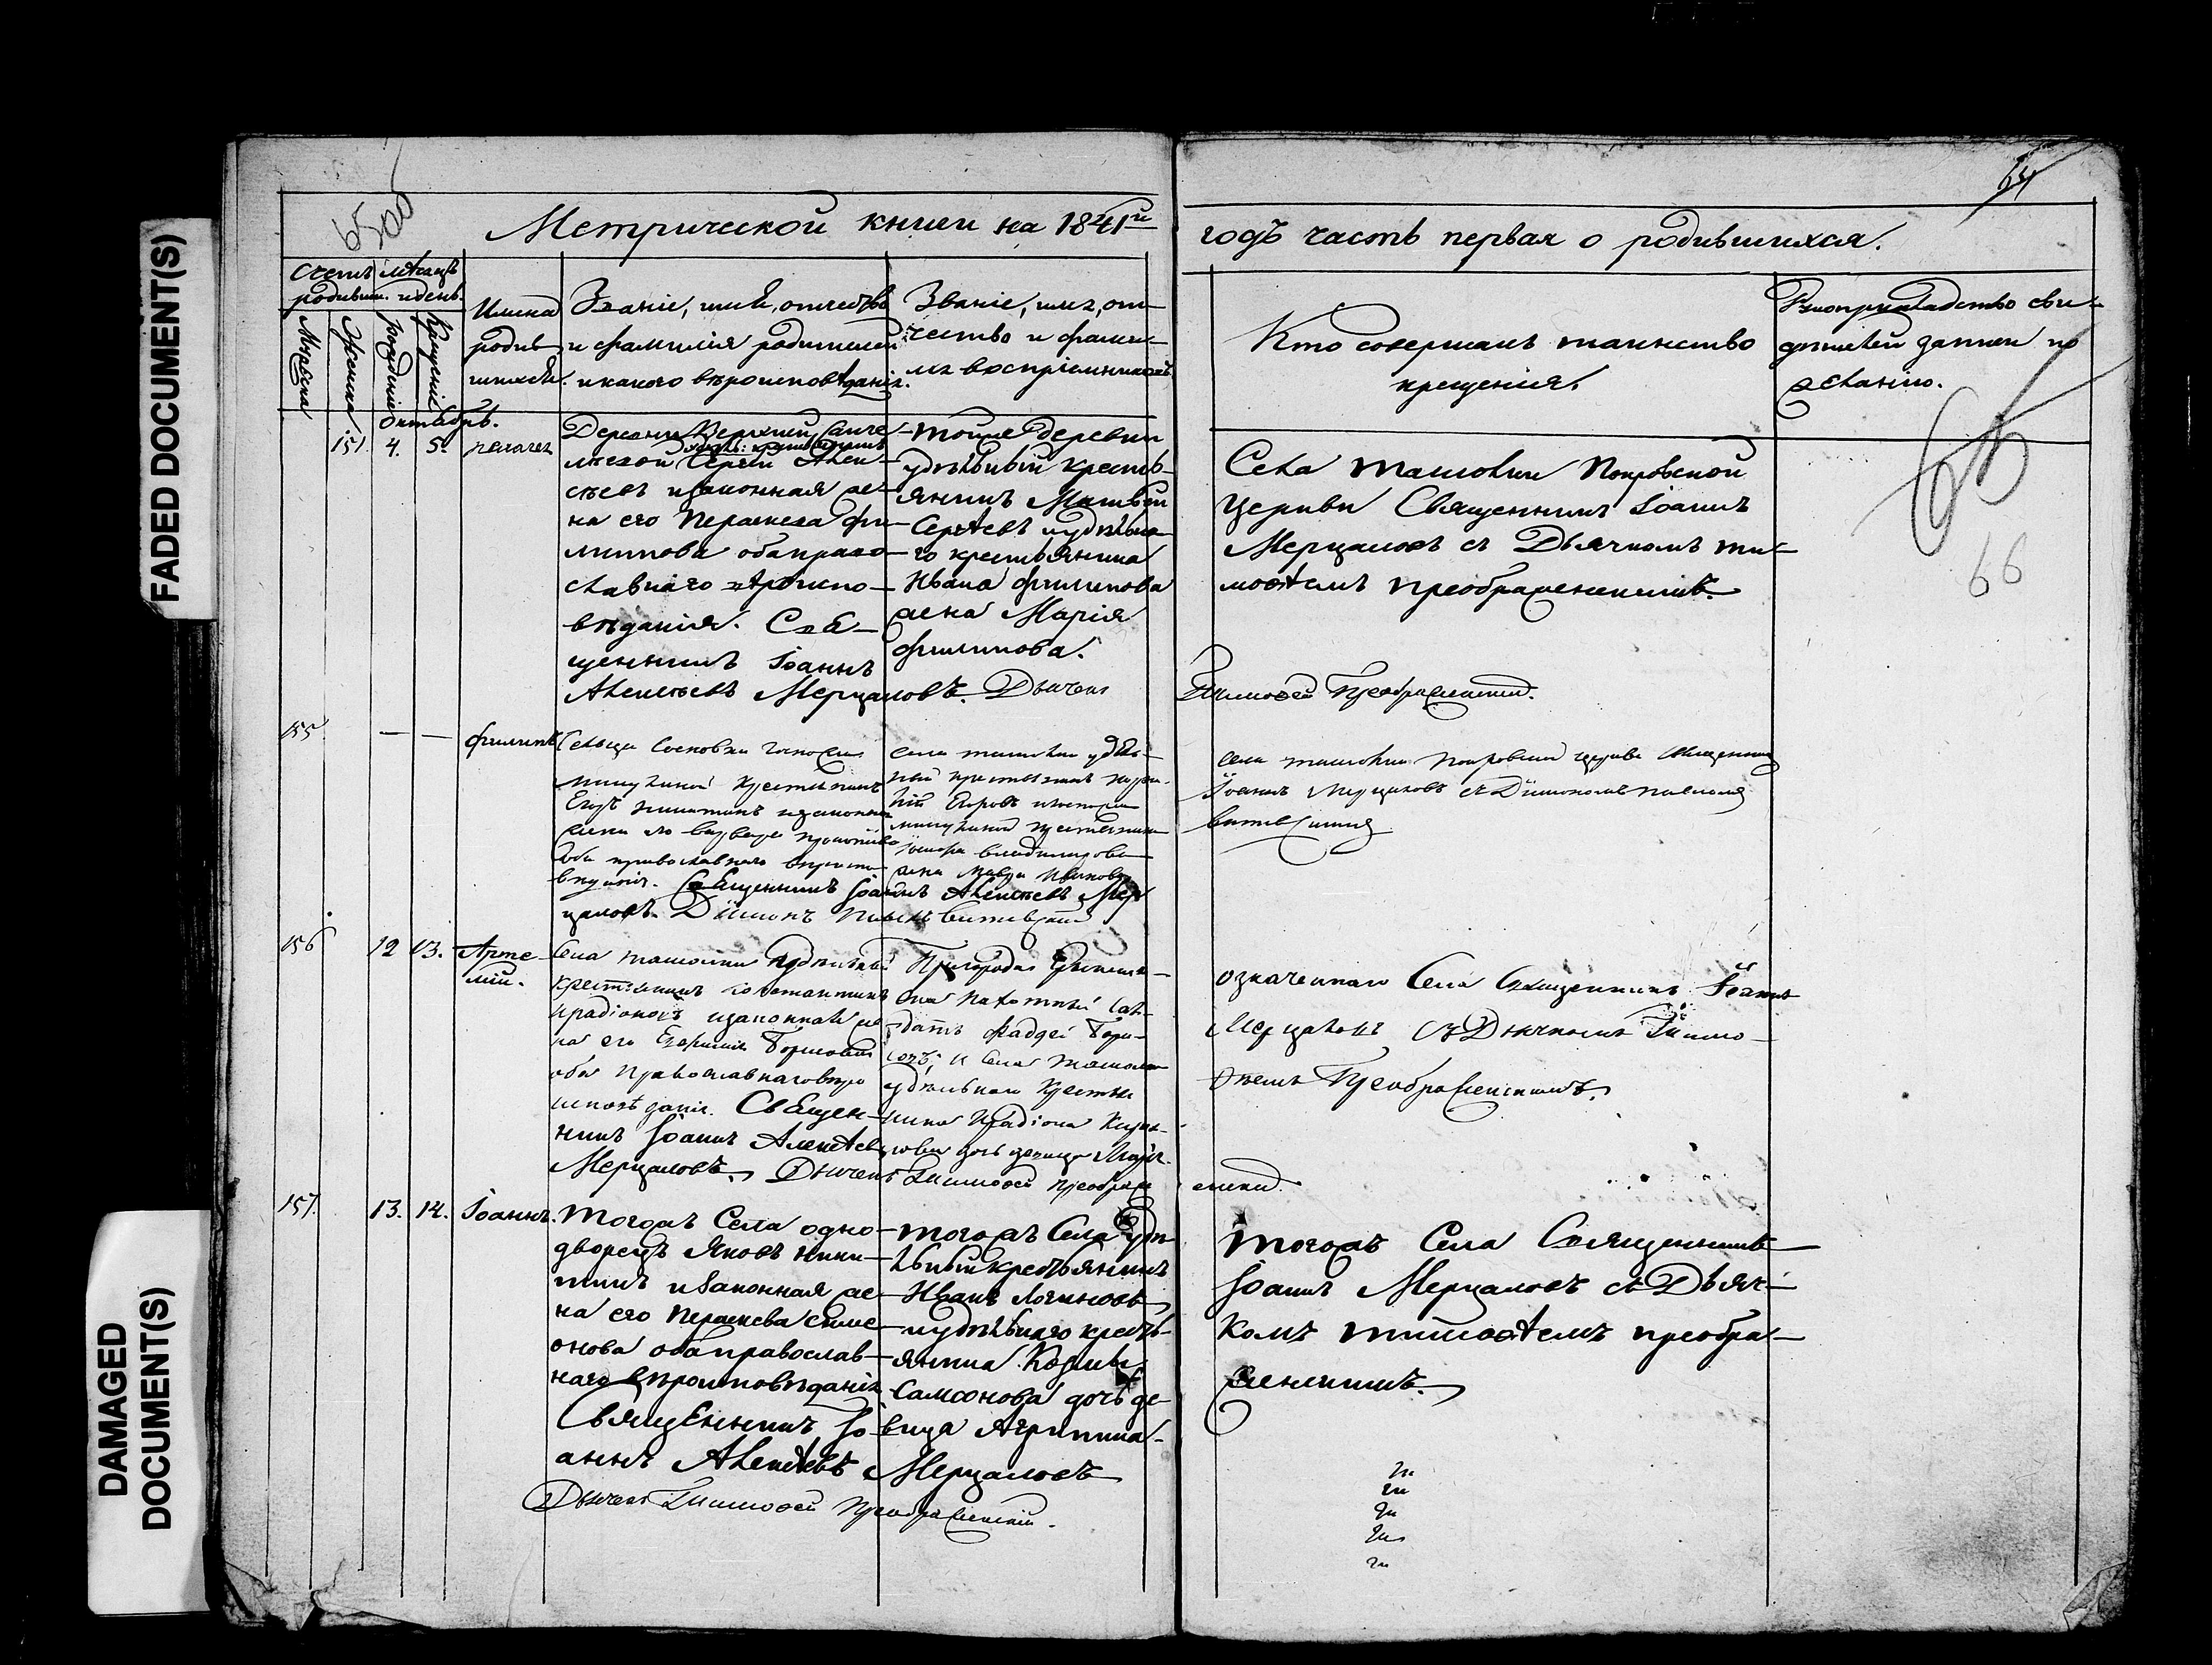 FADED DOCUMENT(S)
DAMAGED
DOCUMENT(S)
65
64
Метрической книги на 1841й
годъ часть первая о родившихся.
Счетъ
родивш.
мѣсяцъ
и день.
Мужеска
Женска
Рожденія
Крещенія
Имена
родив
шихся.
Званіе, имя, отчество
и фамилія родителей
и какого вѣроисповѣданія.
Званіе, имя, от-
чество и фами-
лія воспріемниковъ
Кто совершалъ таинство
крещенія.
Рукоприкладство сви-
дѣтелей записи по
желанію.
Октябрь.
151. 4. 5. Пелагея
Деревни Верхній
Сергѣй Алек-
сѣевъ и законная же-
на его Параскева Фи-
липпова оба право-
славнаго вѣроиспо-
вѣданія. Свя-
щенникъ Іоаннъ
Алексѣевъ Мерцаловъ. Дьячекъ
Тойже деревни
удѣльный кресть-
янинъ Матвѣй
Сергѣевъ и удѣльна-
го крестьянина
Ивана Филипова
жена Марія
Филипова.
Села Ташовки Покровской
Церкви Священникъ Іоаннъ
Мерцаловъ съ Дьячкомъ Ти-
моѳѣемъ Преображенскимъ.
Тимоѳей Преображенский.
66
155 — — Филиппъ
Сельца Сосновки Госпожи
крестьянинъ
Егоръ Никитинъ и законная
жена
оба православнаго вѣроиспо-
вѣданія. Священникъ Іоаннъ Алексѣевъ Мер
цаловъ. Діаконъ
села Ташовки удѣль-
ный крестьянинъ
Егоровъ и Госпожи
крестьянина
Владимирова
жена Мавра Иванова
села Ташовки Покровской церкви Священникъ
Іоаннъ Мерцаловъ съ Діакономъ Павломъ
156 12 13. Арте-
мій.
Села Ташовки удѣльный
крестьянинъ Константинъ
Иродіоновъ и законная же
на его Евфимія Борисова
оба Православнаго вѣро
исповѣданія. Священ-
никъ Іоаннъ Алексѣевъ
Мерцаловъ. Дьячекъ Тимоѳей Преображ
енский.
Пригорода
Пахотный сол-
датъ Фадей Бори-
совъ; и Села Ташовки
удѣльнаго Крестья
нина Иродіона
дочь девица Марѳа.
означеннаго Села Священникъ Іоаннъ
Мерцаловъ съ Дьячкомъ Тимо-
ѳѣемъ Преображенскимъ.
157. 13. 14. Іоаннъ.
Тогожъ Села одно-
дворецъ Яковъ Ники-
тинъ и законная же-
на его Параскева Симе-
онова оба православ-
наго вѣроисповѣданія
Священникъ Іо-
аннъ Алексѣевъ Мерцаловъ
Дьячекъ Тимоѳей Преображенский.
Тогожъ Села удѣ
льный крестьянинъ
Иванъ Логиновъ
и удѣльнаго кресть-
янина Козьмы
Самсонова дочь де-
вица Агрипина
Тогожъ Села Священникъ
Іоаннъ Мерцаловъ съ Дьяч-
комъ Тимоѳѣемъ Преобра-
женскимъ.